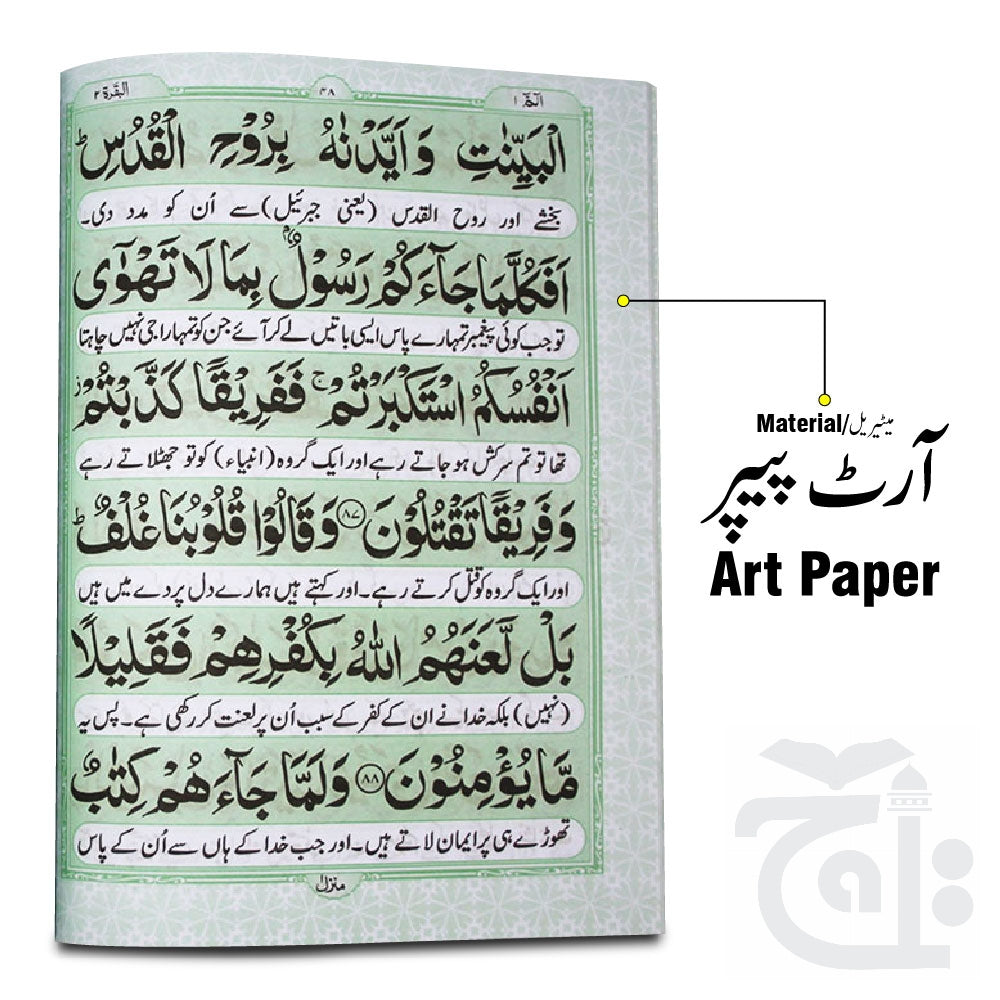 الٓمّٓ ١
٤٨
البقرة ٢
الْبَيِّنٰتِ وَاَيَّدْنٰهُ بِرُوْحِ الْقُدُسِ ؕ
بخشے اور روح القدس (یعنی جبرئیل) سے اُن کو مدد دی۔
اَفَكُلَّمَا جَآءَكُمْ رَسُوْلٌۢ بِمَا لَا تَهْوٰٓى
تو جب کوئی پیغمبر تمہارے پاس ایسی باتیں لے کر آئے جن کو تمہارا جی نہیں چاہتا
اَنْفُسُكُمُ اسْتَكْبَرْتُمْ ۚ فَفَرِيْقًا كَذَّبْتُمْ ز
تھا تو تم سرکش ہو جاتے رہے اور ایک گروہ (انبیاء) کو تو جھٹلاتے رہے
وَفَرِيْقًا تَقْتُلُوْنَ ﴿٨٧﴾ وَقَالُوْا قُلُوْبُنَا غُلْفٌ ؕ
اور ایک گروہ کو قتل کرتے رہے۔ اور کہتے ہیں ہمارے دل پردے میں ہیں
بَلْ لَّعَنَهُمُ اللّٰهُ بِكُفْرِهِمْ فَقَلِيْلًا
(نہیں) بلکہ خدا نے ان کے کفر کے سبب اُن پر لعنت کر رکھی ہے۔ پس یہ
مَّا يُؤْمِنُوْنَ ﴿٨٨﴾ وَلَمَّا جَآءَهُمْ كِتٰبٌ
تھوڑے ہی پر ایمان لاتے ہیں۔ اور جب خدا کے ہاں سے اُن کے پاس
منزل ١
Material/میٹیریل
آرٹ پیپر
Art Paper